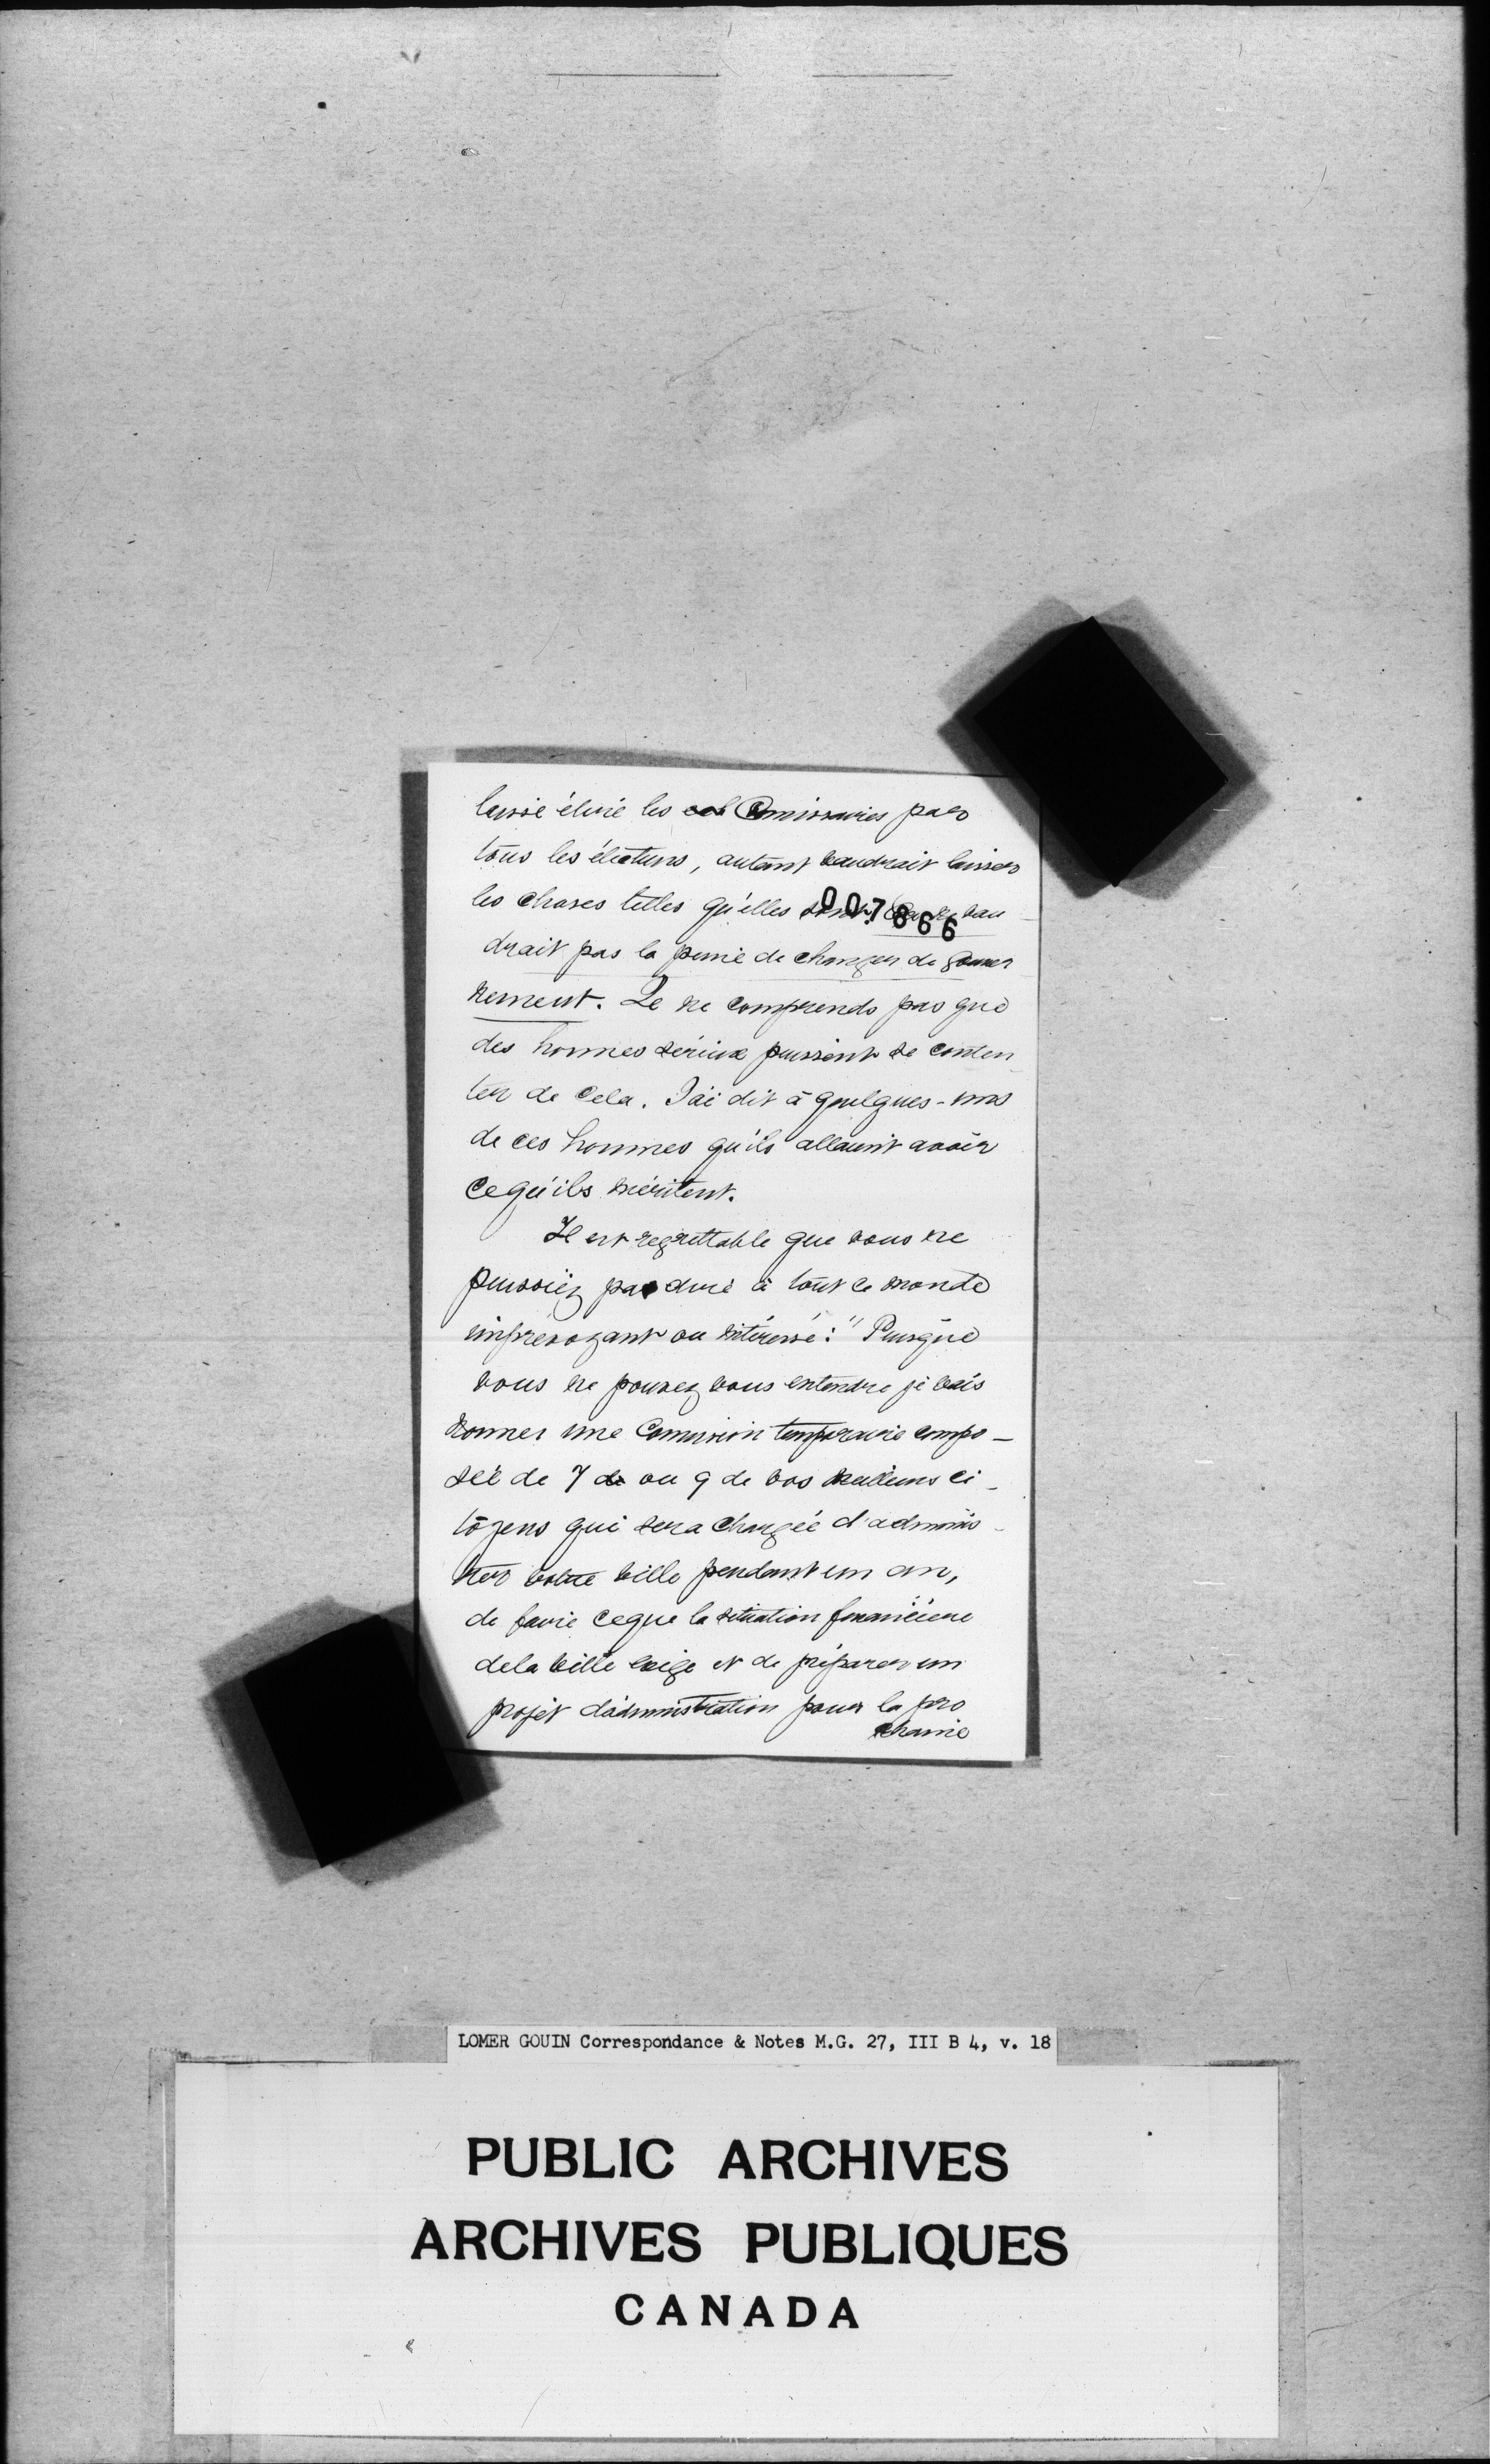 laisse élire les Comissaires par
tous les électeurs, autant vaudrait laisser
les choses telles qu'elles sont. Ca ne vau
007866
drait pas la peine de changer de gouver
nement. Je ne comprends pas que
des hommes sérieux puissent se conten
ter de cela. J'ai dit à quelques-uns
de ces hommes qu'ils allaient avoir
ce qu'ils méritent.
Il est regrettable que vous ne
puissiez pas dire à tout ce monde
imprévoyant ou intéressé: "Puisque
vous ne pouvez vous entendre je vais
nommer une Commission temporaire compo-
sée de 7 ou 9 de vos meilleurs ci-
toyens qui sera chargée d'adminis-
trer votre ville pendant un an,
de faire ce que la situation financière
de la ville exige et de préparer un
projet d'administration pour la pro
chaine
LOMER GOUIN Correspondance & Notes M.G. 27, III B 4, v. 18
PUBLIC ARCHIVES
ARCHIVES PUBLIQUES
CANADA